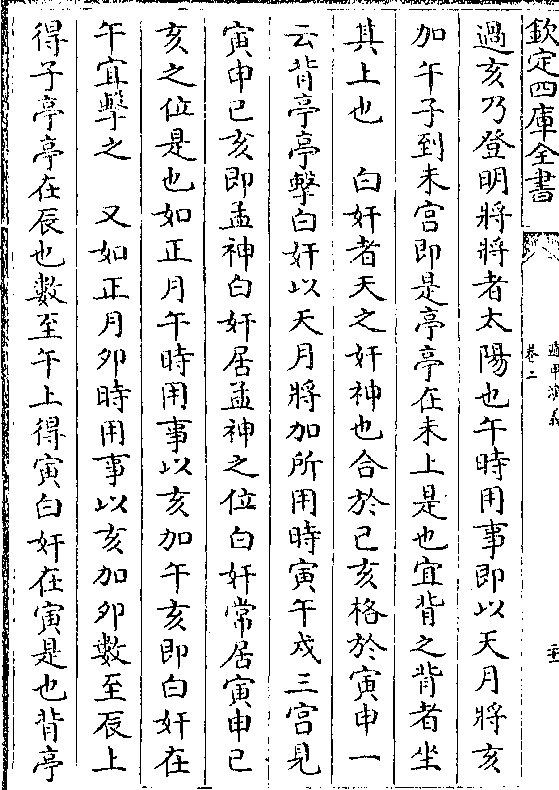 欽定四庫全書
遁甲演義
卷二
過亥乃登明將將者太陽也午時用事即以天月將亥
加午子到未宮即是亭亭在未上是也宜背之背者坐
其上也　白奸者天之奸神也合於已亥格於寅申一
云背亭亭擊白奸以天月將加所用時寅午戍三宮見
寅申已亥即孟神白奸居孟神之位白奸常居寅申已
亥之位是也如正月午時用事以亥加午亥即白奸在
午宜擊之　又如正月夘時用事以亥加夘數至辰上
得子亭亭在辰也數至午上得寅白奸在寅是也背亭